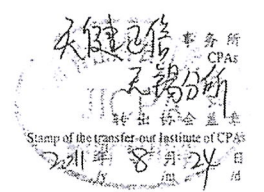 天健正信 事务所
CPAs
无锡分所
转出协会盖章
Stamp of the transfer-out Institute of CPAs
2011年 8月 24日
/y /m /d